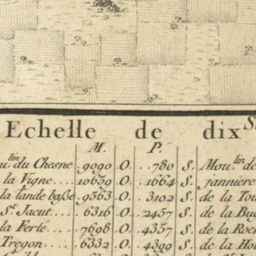 Echelle de dix S
M. P.
lin du Chesne 9090 O. 780 S. Moulin de
la Vigne 10639 O. 1664 S. janniere
la lande baſse 9363 O. 3102 S. de la Tou
St. Jacut 6316 O. 2437 S. de la Bu
la Ferlé 7608 O. 4357 S. de la Roch
Tregon 6332 O. 4399 S. de la Ho